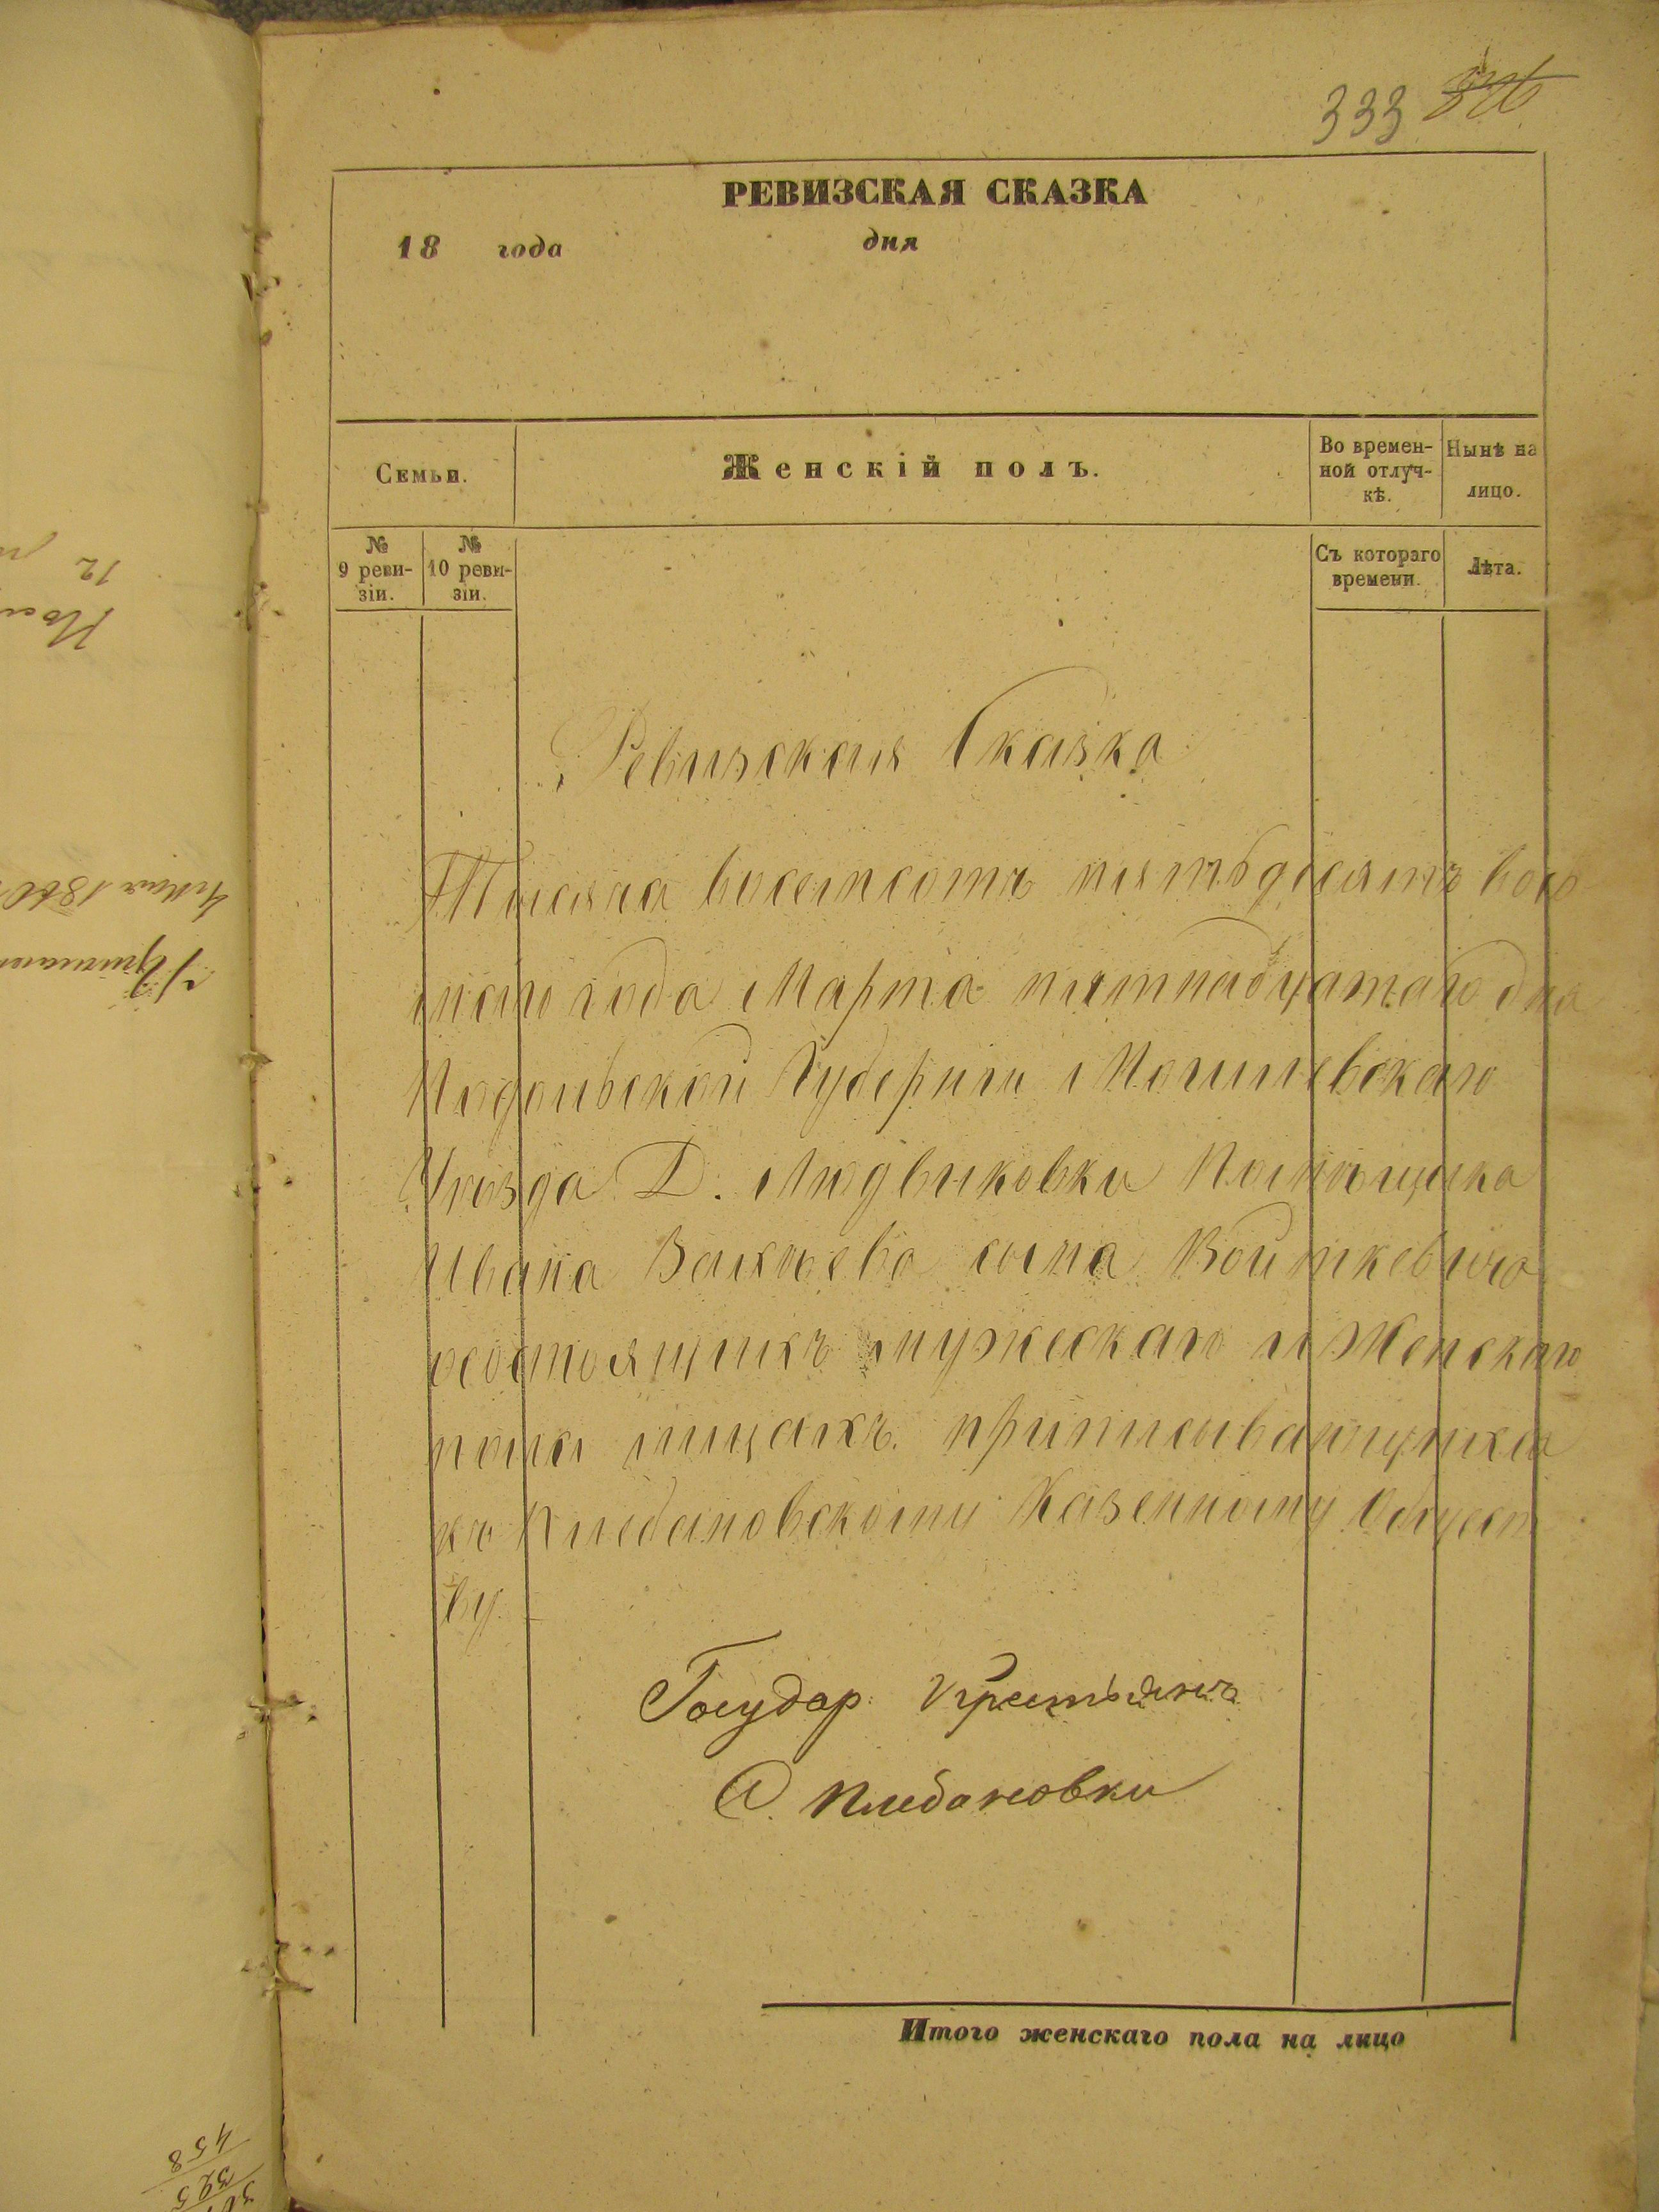 333
РЕВИЗСКАЯ СКАЗКА
18 года дня
Семьи.
Женскій полъ.
Во времен-
ной отлуч-
кѣ.
Нынѣ на
лицо.
№
9 реви-
зіи.
№
10 реви-
зіи.
Съ котораго
времени.
Лѣта.
Ревизская Сказка
Тысяча восемсотъ пятьдесятъ вось
мого года Марта пятнадцатаго дня
Подольской Губерніи Могилевскаго
Уѣзда Д. Людвиковки Помѣщика
Ивана сына Войткевича
о состоящихъ мужескаго и Женскаго
пола лицахъ приписывающихся
къ Плебановскому Казенному Общест
ву.
Государ: Крестьянъ
С. Плебановки
Итого женскаго пола на лицо
12
458
325